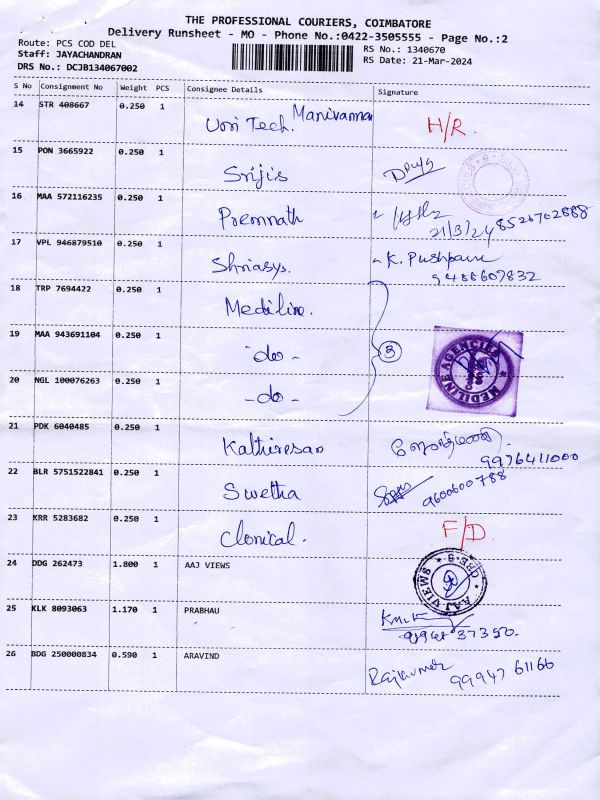 THE PROFESSIONAL COURIERS, COIMBATORE
Delivery Runsheet - MO - Phone No.:0422-3505555 - Page No.:2
Route: PCS COD DEL
Staff: JAYACHANDRAN
DRS No.: DCJB134067002
RS No.: 1340670
RS Date: 21-Mar-2024
S No Consignment No Weight PCS Consignee Details Signature
14 STR 408667 0.250 1 Uni Tech. Manivannan H/R.
15 PON 3665922 0.250 1 Srijis
16 MAA 572116235 0.250 1 Premnath 21/3/24 8526702888
17 VPL 946879510 0.250 1 Shriasys. K. Pushpam
9488607832
18 TRP 7694422 0.250 1 Mediline.
19 MAA 943691104 0.250 1 -do- 3 MEDILINE AGENCIES
20 NGL 100076263 0.250 1 -do-
21 PDK 6040485 0.250 1 Kathiresan
9976411000
22 BLR 5751522841 0.250 1 Swetha 9600600788
23 KRR 5283682 0.250 1 Clonical. F/D.
24 DDG 262473 1.800 1 AAJ VIEWS AAJ VIEWS CBE-9
25 KLK 8093063 1.170 1 PRABHAU
37350.
26 BDG 250000834 0.590 1 ARAVIND Rajkumar 99947 61166